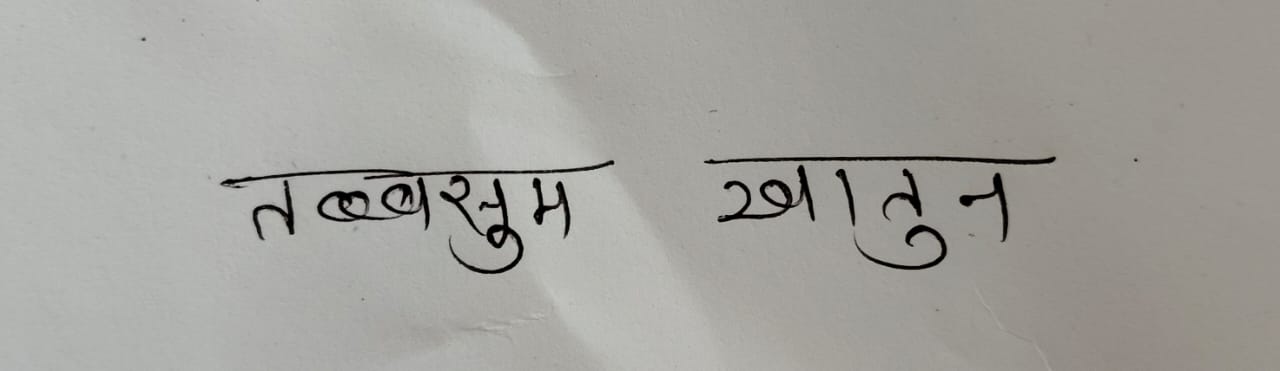 तब्बसुम खातुन